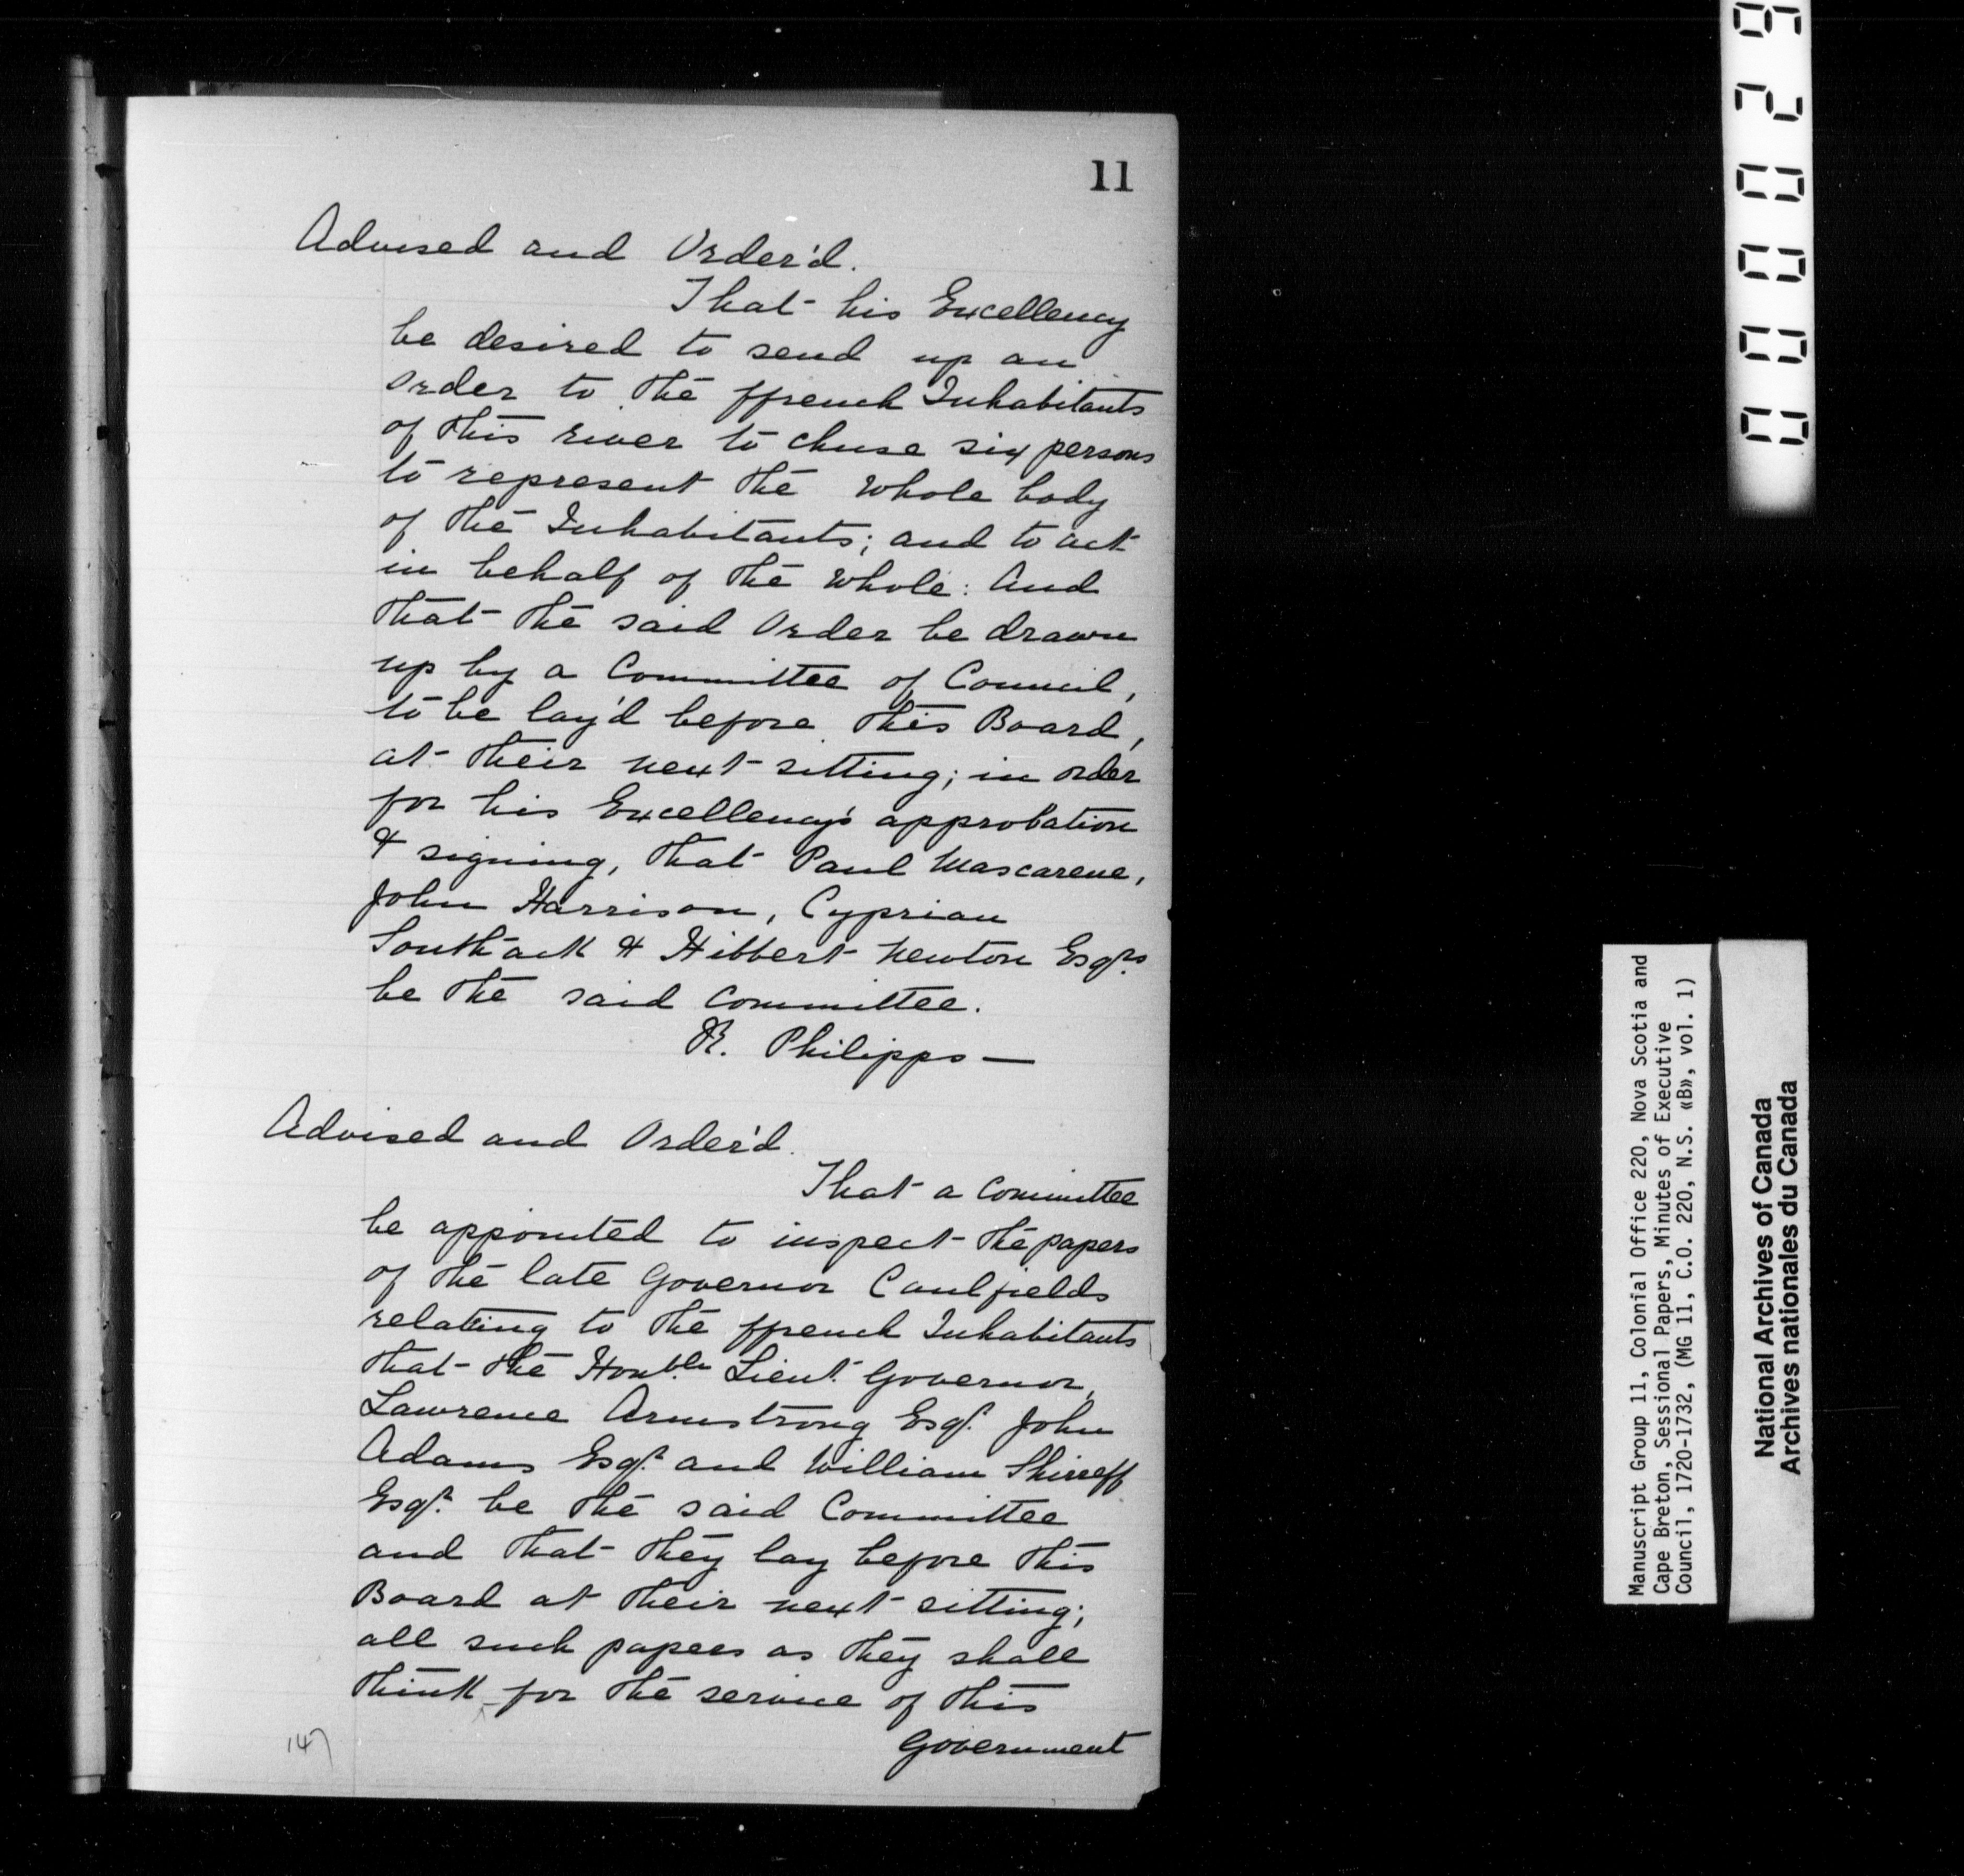 11
Advised and Order'd.
That his Excellency
be desired to send up an
Order to the ffrench Inhabitants
of this river to chuse six persons
to represent the whole body
of the Inhabitants; and to act
in behalf of the whole: And
that the said Order be drawn
up by a Committee of Council,
to be lay'd before this Board,
at their next sitting; in order
for his Excellency's approbation
& signing, that Paul Mascarene,
John Harrison, Cyprian
Southack & Hibbert Newton Esqrs
be the said Committee.
R. Philipps —
Advised and Order'd.
That a Committee
be appointed to inspect the papers
of the late Governor Caulfields
relating to the ffrench Inhabitants
that the Honble Lieut. Governor,
Lawrence Armstrong Esqr. John
Adams Esqr. and William Shirreff
Esqr. be the said Committee
and that they lay before this
Board at their next sitting;
all such papers as they shall
think for the service of this
Government
147
000029
Manuscript Group 11, Colonial Office 220, Nova Scotia and
Cape Breton, Sessional Papers, Minutes of Executive
Council, 1720-1732, (MG 11, C.O. 220, N.S. «B», vol. 1)
National Archives of Canada
Archives nationales du Canada